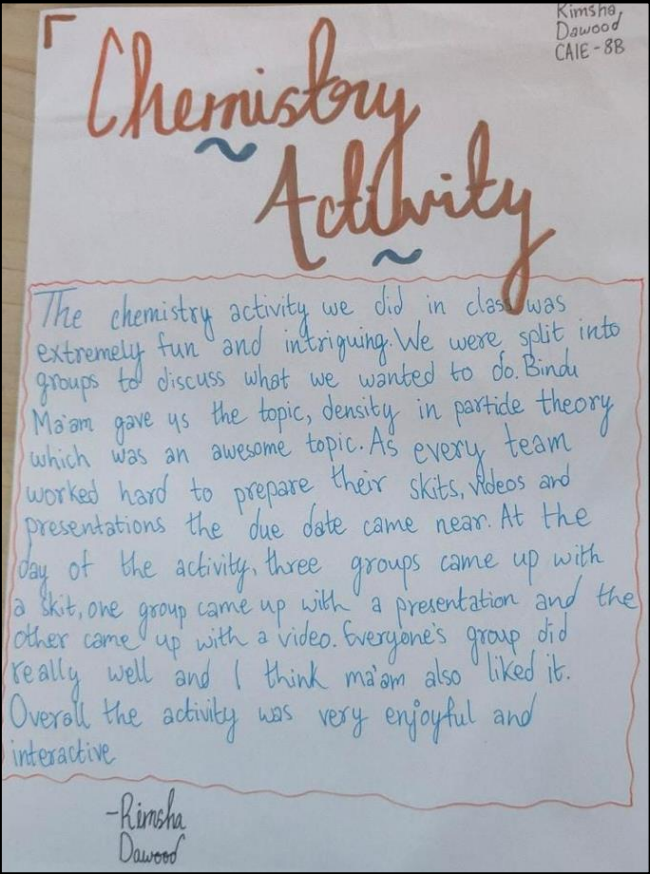 Rimsha,
Dawood
CAIE-8B
Chemistry
Activity
The chemistry activity we did in class was
extremely fun and intriguing. We were split into
groups to discuss what we wanted to do. Bindu
Ma'am gave us the topic, density in particle theory
which was an awesome topic. As every team
worked hard to prepare their skits, videos and
presentations the due date came near. At the
day of the activity, three groups came up with
a skit, one group came up with a presentation and the
other came up with a video. Everyone's group did
really well and I think ma'am also liked it.
Overall the activity was very enjoyful and
interactive
-Rimsha
Dawood